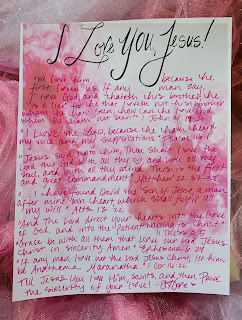 I Love You, Jesus!
"We love him because he
first loved us. If any man say,
I love God, and hateth his brother, he
is a liar: for he that loveth not his brother
whom he hath seen, how can he love God
whom he hath not seen" I John 4:19
"I Love the Lord, because he hath heard
my voice and my supplications." Psalm 116
"Jesus said unto him, Thou shalt love the
Lord thy God with all thy ♡ and with all thy
Soul, and with all thy mind. This is the first
and great commandment." Matthew 22:37-38
"I have found David the Son of Jesse, a man
after mine own heart, which shall fulfil all
my will." Acts 13:22
"And the Lord direct your hearts into the love
of God, and into the patient waiting for Christ."
"Grace be with all them that love our Lord Jesus
Christ in sincerity. Amen." Ephesians 6:24
"If any man love not the Lord Jesus Christ, let him
be Anathema Maranatha" I Cor 16:22
Tell Jesus You love Him, saints, and then Prove
the sincerity of your love!